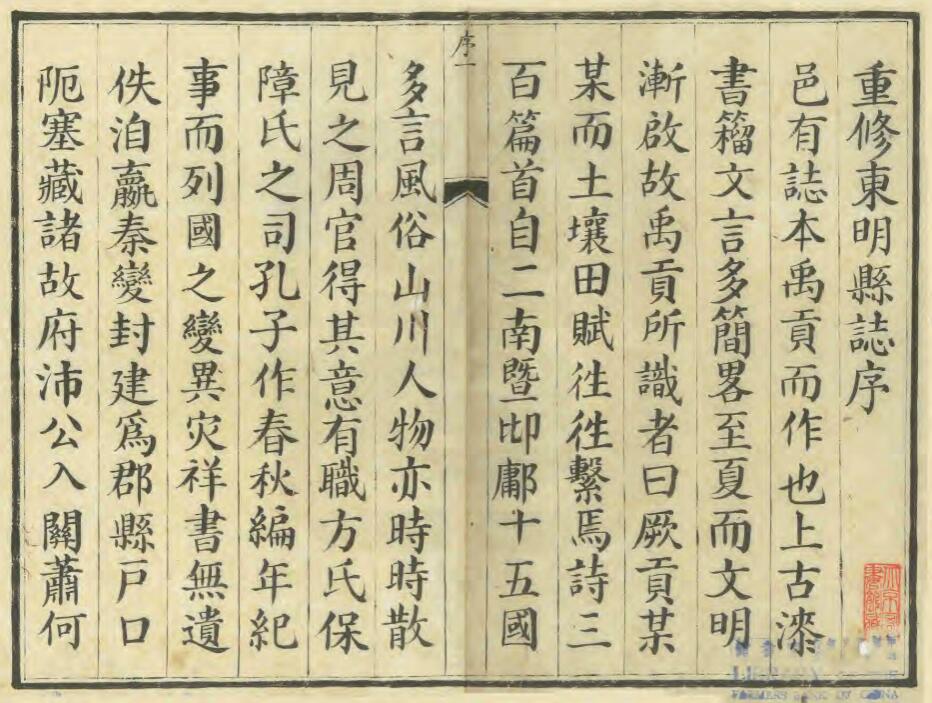 重修東明縣誌序
邑有誌本禹貢而作也上古漆
書籀文言多簡畧至夏而文明
漸啟故禹貢所識者曰厥貢某
某而土壤田賦徃徃繫焉詩三
百篇首自二南暨邶鄘十五國
序一
多言風俗山川人物亦時時散
見之周官得其意有職方氏保
障氏之司孔子作春秋編年紀
事而列國之變異灾祥書無遺
佚洎嬴秦變封建爲郡縣戶口
阨塞藏諸故府沛公入關蕭何
LIBRARY
FARMERS BANK OF CHINA